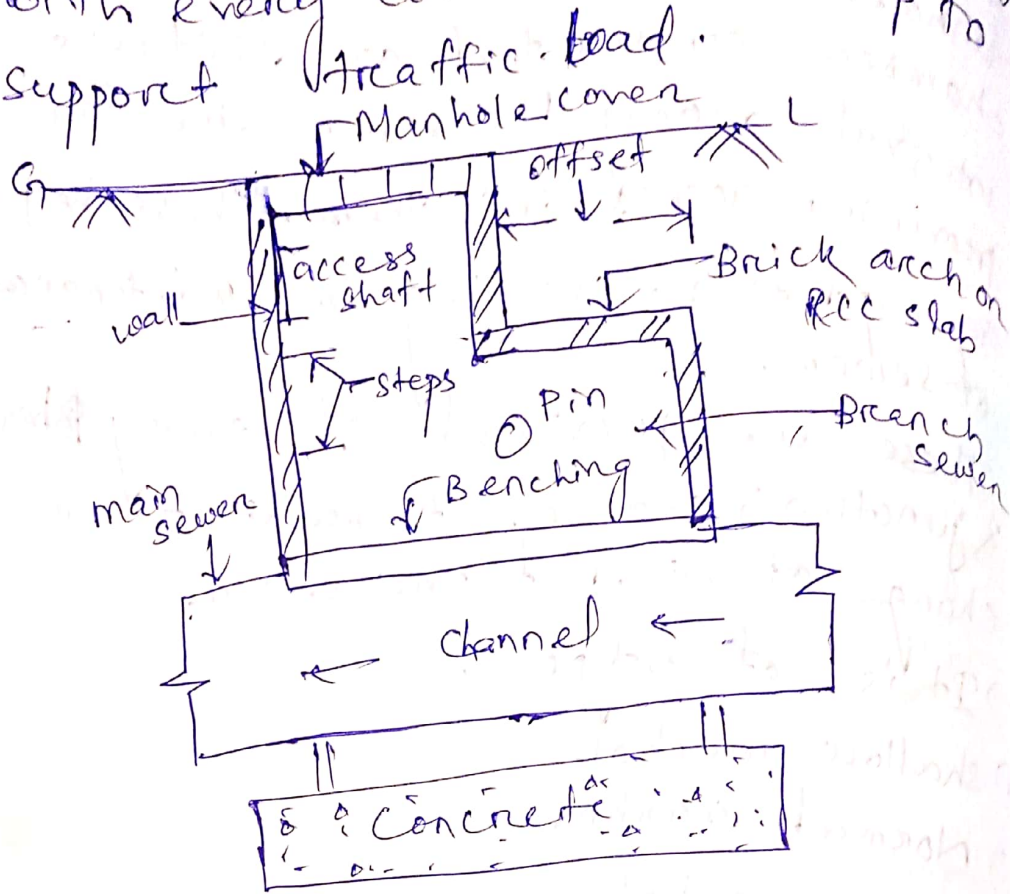 support traffic load.
Manhole cover
G
L
offset
access
shaft
Brick arch on
RCC slab
wall
steps
O Pin
Branch
sewer
Benching
main
sewer
Channel
Concrete